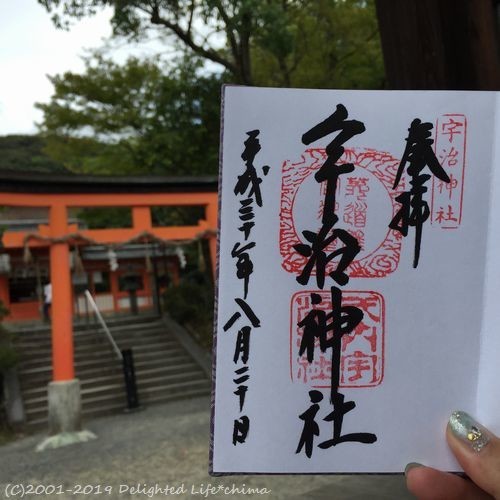 宇治神社
奉拝
宇治神社
平成三十年八月二十日
(C)2001-2019 Delighted Life*chima